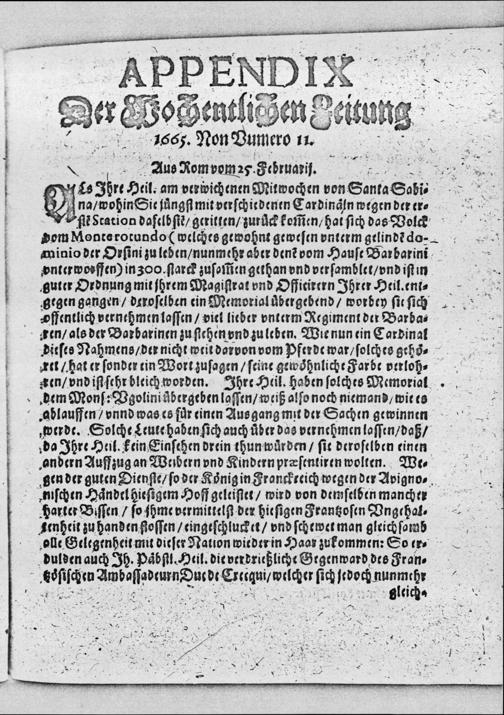 APPENDIX
Der Wochentlichen Zeitung
1665. Non Vumero 11.
Aus Rom vom 25. Februarij.
ALs Ihre Heil. am verwichenen Mitwochen von Santa Sabi-
na/wohin Sie jüngst mit verschiedenen Cardinäln wegen der er-
stē Station daselbstē/ geritten/ zurück kom̄en/ hat sich das Volck
vom Monterotundo (welches gewohnt gewesen unterm gelindē do-
minio der Orsini zu leben/ nunmehr aber denē vom Hause Barbarini
unterworffen) in 300. starck zusam̄en gethan und versamblet/ und ist in
guter Ordnung mit ihrem Magistrat und Officirern Ihrer Heil. ent-
gegen gangen/ deroselben ein Memorial übergebend/ worbey sie sich
offentlich vernehmen lassen/ viel lieber unterm Regiment der Barba-
ren/ als der Barbarinen zu stehen und zu leben. Wie nun ein Cardinal
dieses Nahmens/ der nicht weit darvon vom Pferde war/ solches gehö-
ret/ hat er sonder ein Wort zusagen/ seine gewöhnliche Farbe verloh-
ren/ und ist sehr bleich worden. Ihre Heil. haben solches Memorial
dem Mons: Vgolini übergeben lassen/ weiß also noch niemand/ wie es
ablauffen/ vnnd was es für einen Ausgang mit der Sachen gewinnen
werde. Solche Leute haben sich auch über das vernehmen lassen/ daß/
da Ihre Heil. kein Einsehen drein thun würden/ sie deroselben einen
andern Auffzug an Weibern und Kindern præsentiren wolten. We-
gen der guten Dienste/ so der König in Franckreich wegen der Avigno-
nischen Händel hiesigem Hoff geleistet/ wird von demselben mancher
harter Bissen/ so ihme vermittelst der hiesigen Frantzosen Vngehal-
tenheit zu handen stossen/ eingeschlucket/ und schewet man gleichsamb
alle Gelegenheit mit dieser Nation wieder in Haar zukommen: So er-
dulden auch Ih. Päbstl. Heil. die verdrießliche Gegenward des Fran-
tzösischen Ambassadeurn Duc de Crecqui/ welcher sich jedoch nunmehr
gleich-